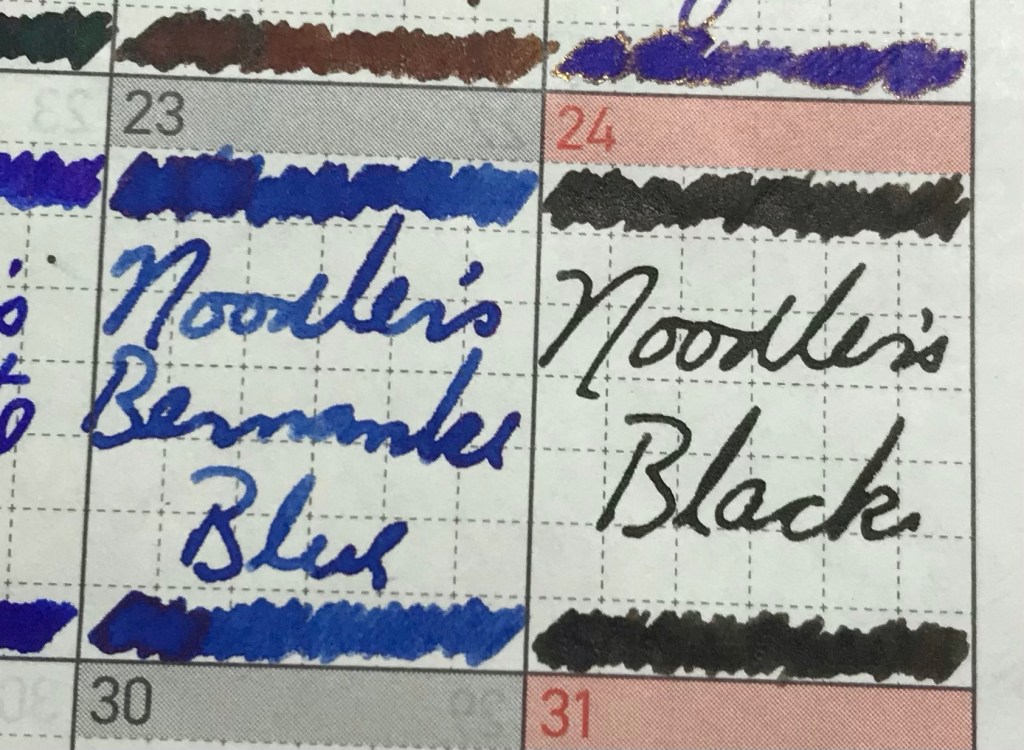 23
24
Noodler's
Bernanke
Blue
Noodler's
Black
30
31